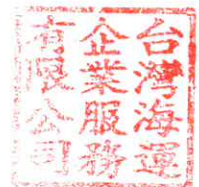 台灣海運
企業服務
有限公司